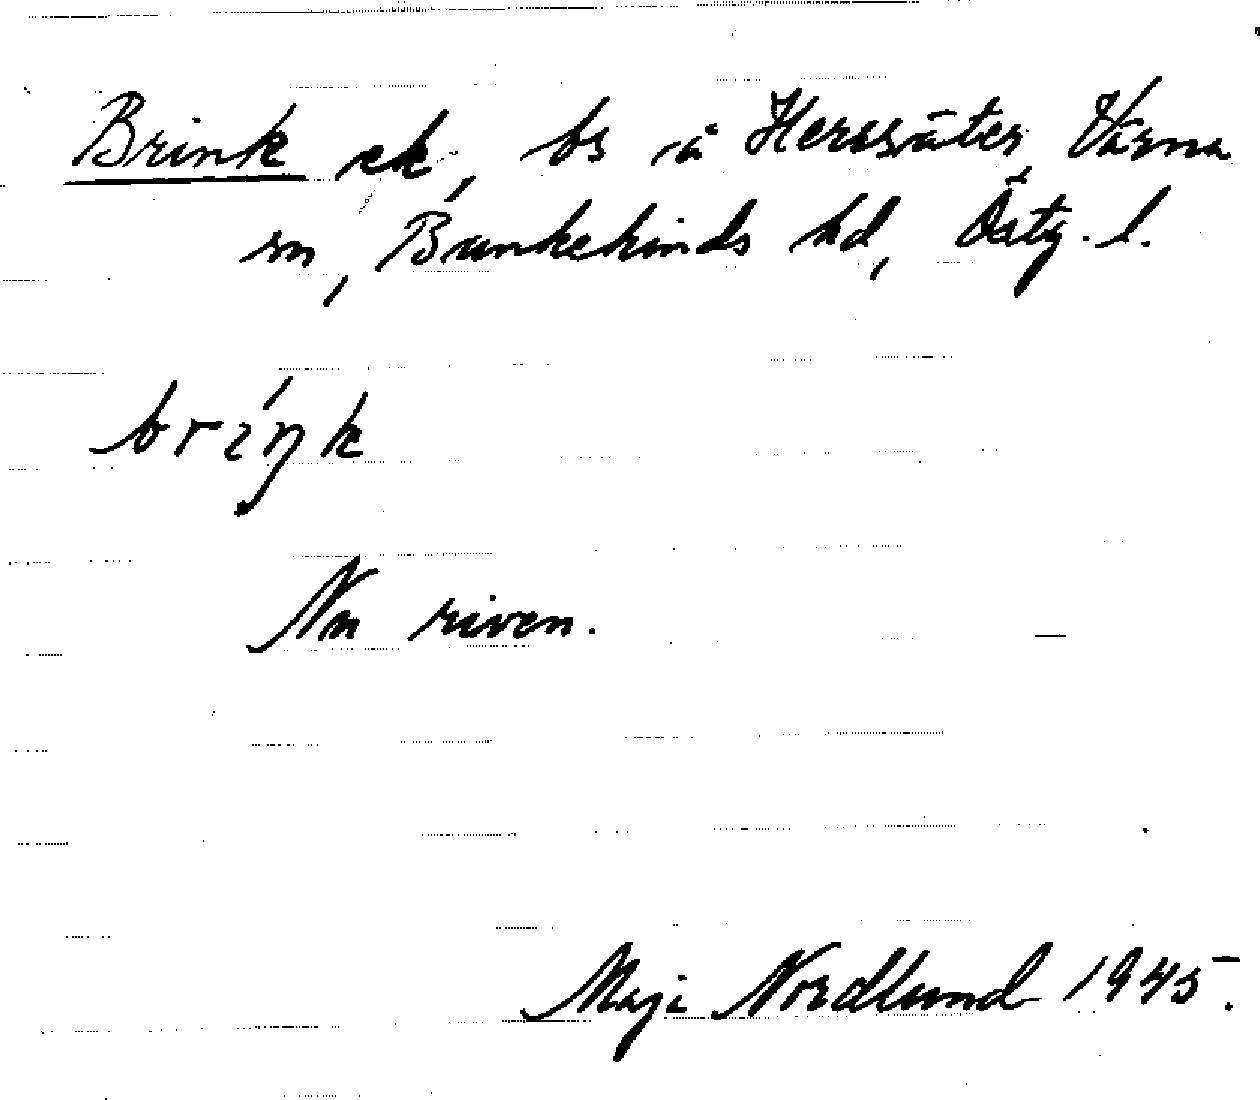 Brink ek, bs å Herrsäter, Värna
sn, Bankekinds hd, Östg. l.
briŋk
Nu riven.
Maja Nordlund 1945.